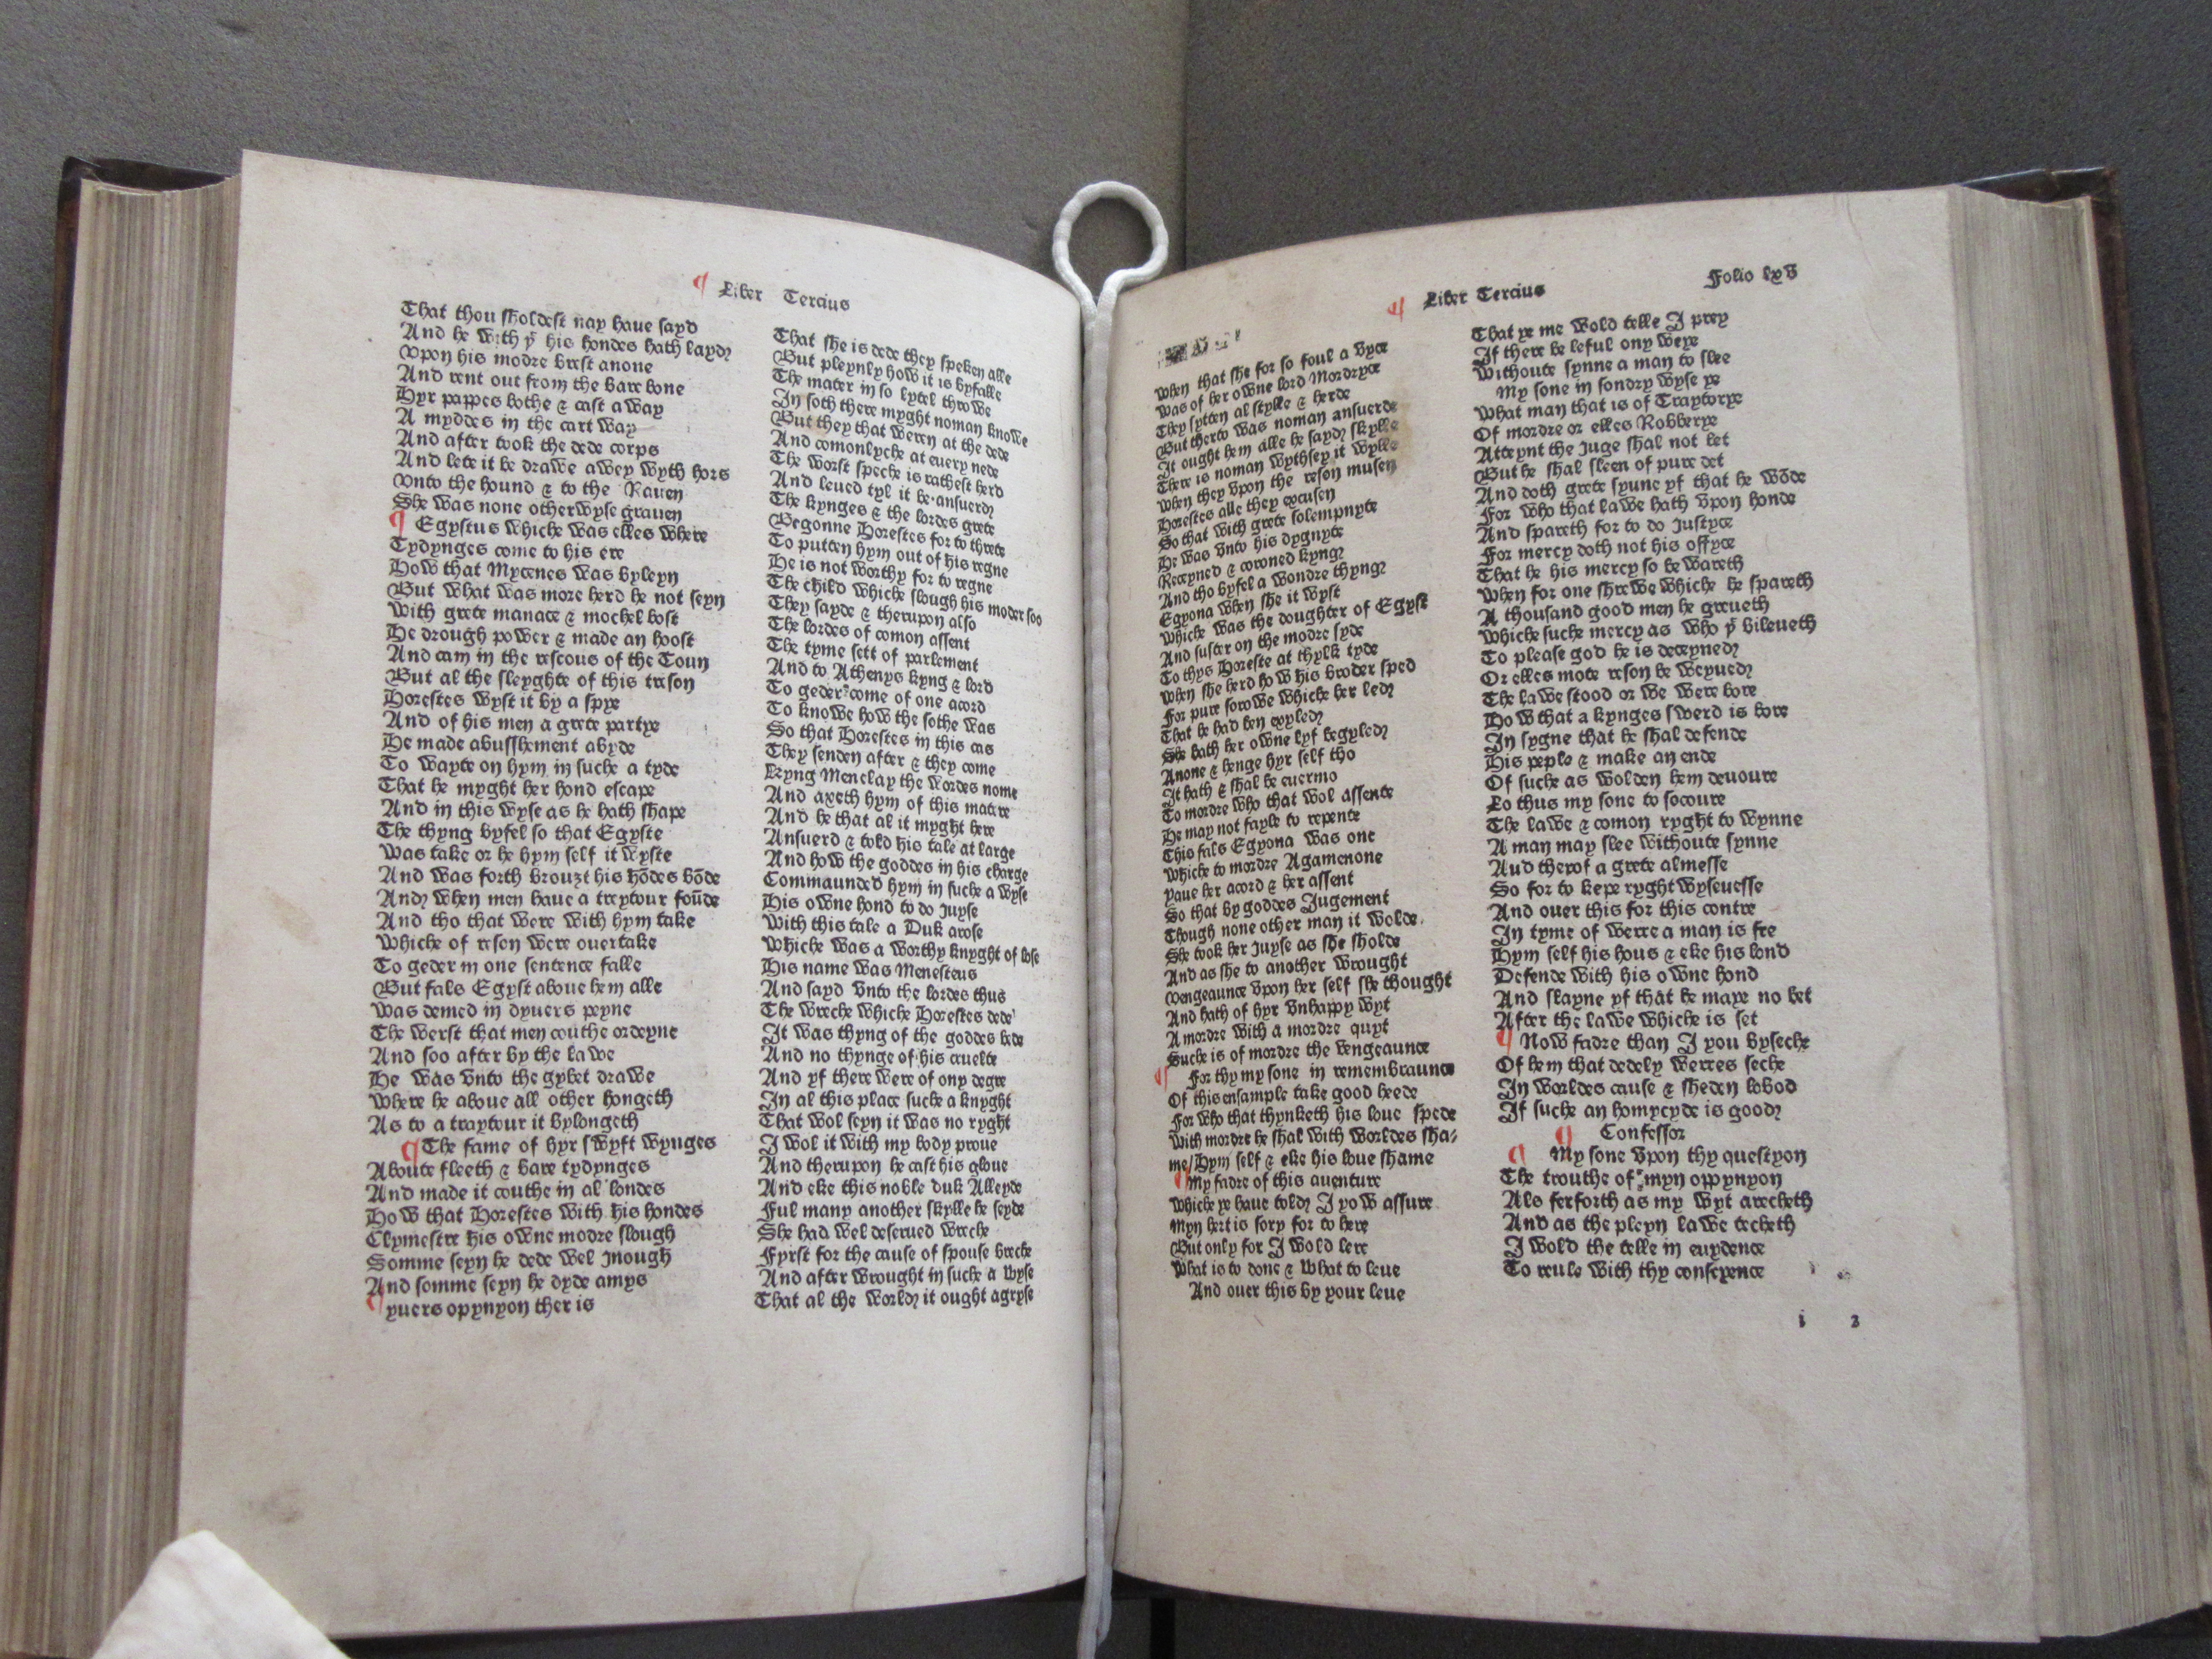 ¶ Liber Tercius
That thou sholdest nay haue sayd
And he with yͭ his hondes hath laydꝫ
Vpon his modre brest anone
And rent out from the bare bone
Hyr pappes bothe & cast a way
A myddes in the cart way
And after took the dede corps
And lete it be drawe awey wyth hors
Vnto the hound & to the Rauen
She was none otherwyse grauen
¶ Egystus whiche was elles where
Tydynges come to his ere
How that Mycenes was byleyn
But what was more herd he not seyn
With grete manace & mochel bost
He drough power & made an hoost
And cam in the rescous of the Toun
But al the sleyghte of this treson
Horestes wyst it by a spye
And of his men a grete partye
He made abusshement abyde
To wayte on hym in suche a tyde
That he myght her hond escape
And in this wyse as he hath shape
The thyng byfel so that Egyste
Was take or he hym self it wyste
And was forth brouzt his hōdes bōde
Andꝫ when men haue a treytour foūde
And tho that were with hym take
Whiche of reson were ouertake
To geder in one sentence falle
But fals Egyst aboue hem alle
Was demed in dyuers peyne
The werst that men couthe ordeyne
And soo after by the lawe
He was vnto the gybet drawe
Where he aboue all other hongeth
As to a traytour it bylongeth
¶ The fame of hyr swyft wynges
Aboute fleeth & bare tydynges
And made it couthe in al londes
How that Horestes with his hondes
Clymestre his owne modre slough
Somme seyn he dede wel jnough
And somme seyn he dyde amys
¶ yuers opynyon ther is
That she is dede they speken alle
But pleynly how it is byfalle
The mater in so lytel throwe
In soth there myght noman knowe
But they that weren at the dede
And comonlyche at euery nede
The worst speche is rathest herd
And leued tyl it be ansuerdꝫ
The kynges & the lordes grete
Begonne Horestes for to threte
To putten hym out of his regne
He is not worthy for to regne
The child whiche slough his moder soo
They sayde & therupon also
The lordes of comon assent
The tyme sett of parlement
And to Athenys kyng & lord
To geder come of one acord
To knowe how the sothe was
So that Horestes in this cas
They senden after & they come
Kyng Menelay the wordes nome
And axeth hym of this matere
And he that al it myght here
Ansuerd & told his tale at large
And how the goddes in his charge
Commaunded hym in suche a wyse
His owne hond to do juyse
With this tale a Duk arose
Whiche was a worthy knyght of lose
His name was Menesteus
And sayd vnto the lordes thus
The wreche whiche Horestes dede
It was thyng of the goddes bede
And no thynge of his cruelte
And yf there were of ony degre
In al this place suche a knyght
That wol seyn it was no ryght
I wol it with my body proue
And therupon he cast his gloue
And eke this noble duk Alleyde
Ful many another skylle he seyde
She had wel deserued wreche
Fyrst for the cause of spouse breche
And after wrought in suche a wyse
That al the worldꝫ it ought agryse
¶ Liber Tercius
Folio lxv
When that she for so foul a vyce
Was of her owne lord Mordryce
They sytten al stylle & herde
But therto was noman ansuerde
It ought hem alle he saydꝫ skylle
There is noman wythsey it wylle
When they vpon the reson musen
Horestes alle they excusen
So that with grete solempnyte
He was vnto his dygnyte
Receyned & corowned kyngꝫ
And tho byfel a wondre thyngꝫ
Egyona when she it wyst
Whiche was the doughter of Egyst
And suster on the modre syde
To thys Horeste at thylk tyde
When she herd how his broder sped
For pure sorowe whiche her ledꝫ
That he had ben exyledꝫ
She hath her owne lyf begyledꝫ
Anone & henge hyr self tho
It hath & shal be euermo
To mordre who that wol assente
He may not fayle to repente
This fals Egyona was one
Whiche to mordre Agamenone
Yaue her acord & her assent
So that by goddes Jugement
Though none other man it wolde
She took her juyse as she sholde
And as she to another wrought
Vengeaunce vpon her self she thought
And hath of hyr vnhappy wyt
A mordre with a mordre quyt
Suche is of mordre the vengeaunce
¶ For thy my sone in remembraunce
Of this ensample take good heede
For who that thynketh his loue spede
With mordre he shal with worldes sha⸗
me/Hym self & eke his loue shame
¶ My fadre of this auenture
Whiche ye haue toldꝫ I yow assure
Myn hert is sory for to here
But only for I wold lere
What is to done & what to leue
And ouer this by your leue
That ye me wold telle I prey
If there be leful ony weye
Withoute synne a man to slee
My sone in sondry wyse ye
What man that is of Traytorye
Of mordre or elles Robberye
Atteynt the Juge shal not let
But he shal sleen of pure det
And doth grete synne yf that he wōde
For who that lawe hath vpon honde
And spareth for to do justyce
For mercy doth not his offyce
That he his mercy so bewareth
When for one shrewe whiche he spareth
A thousand good men he greueth
Whiche suche mercy as who yͭ bileueth
To please god he is deceynedꝫ
Or elles mote reson be weyuedꝫ
The lawe stood or we were bore
How that a kynges swerd is bore
In sygne that he shal defende
His peple & make an ende
Of suche as wolden hem deuoure
Lo thus my sone to socoure
The lawe & comon ryght to wynne
A man may slee withoute synne
Aud therof a grete almesse
So for to kepe ryghtwyseuesse
And ouer this for this contre
In tyme of werre a man is fre
Hym self his hous & eke his lond
Defende with his owne hond
And slayne yf that he maye no bet
After the lawe whiche is set
¶ Now fadre than I you byseche
Of hem that dedely werres seche
In worldes cause & sheden lobod
If suche an homycyde is goodꝫ
¶ Confessor
¶ My sone vpon thy questyon
The trouthe of myn oppynyon
Als ferforth as my wyt arecheth
And as the pleyn lawe techeth
I wold the telle in euydence
To reule with thy conseyence
i 2